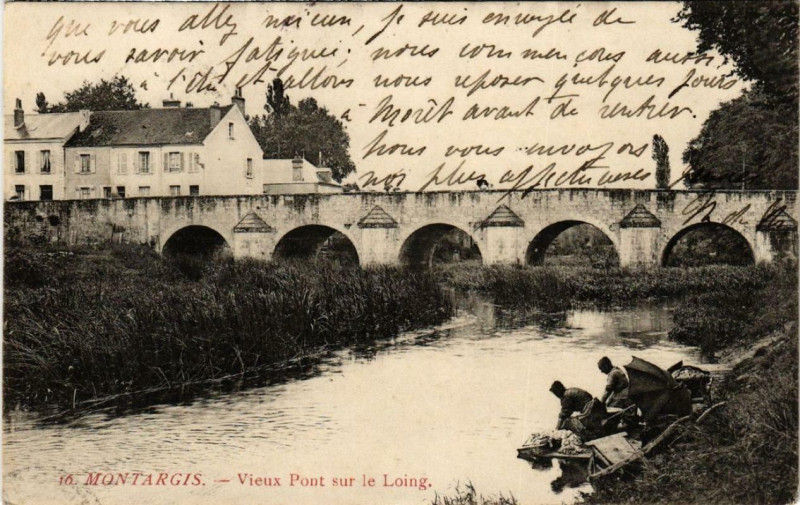 que vous alley mieux, je suis ennuyée de
vous savoir fatiguée. nous commençons aussi
à l'être et allons nous reposer quelques jours
à Morêt avant de rentrer
nous vous envoyons
nos plus affectueuses
16. MONTARGIS. — Vieux Pont sur le Loing.